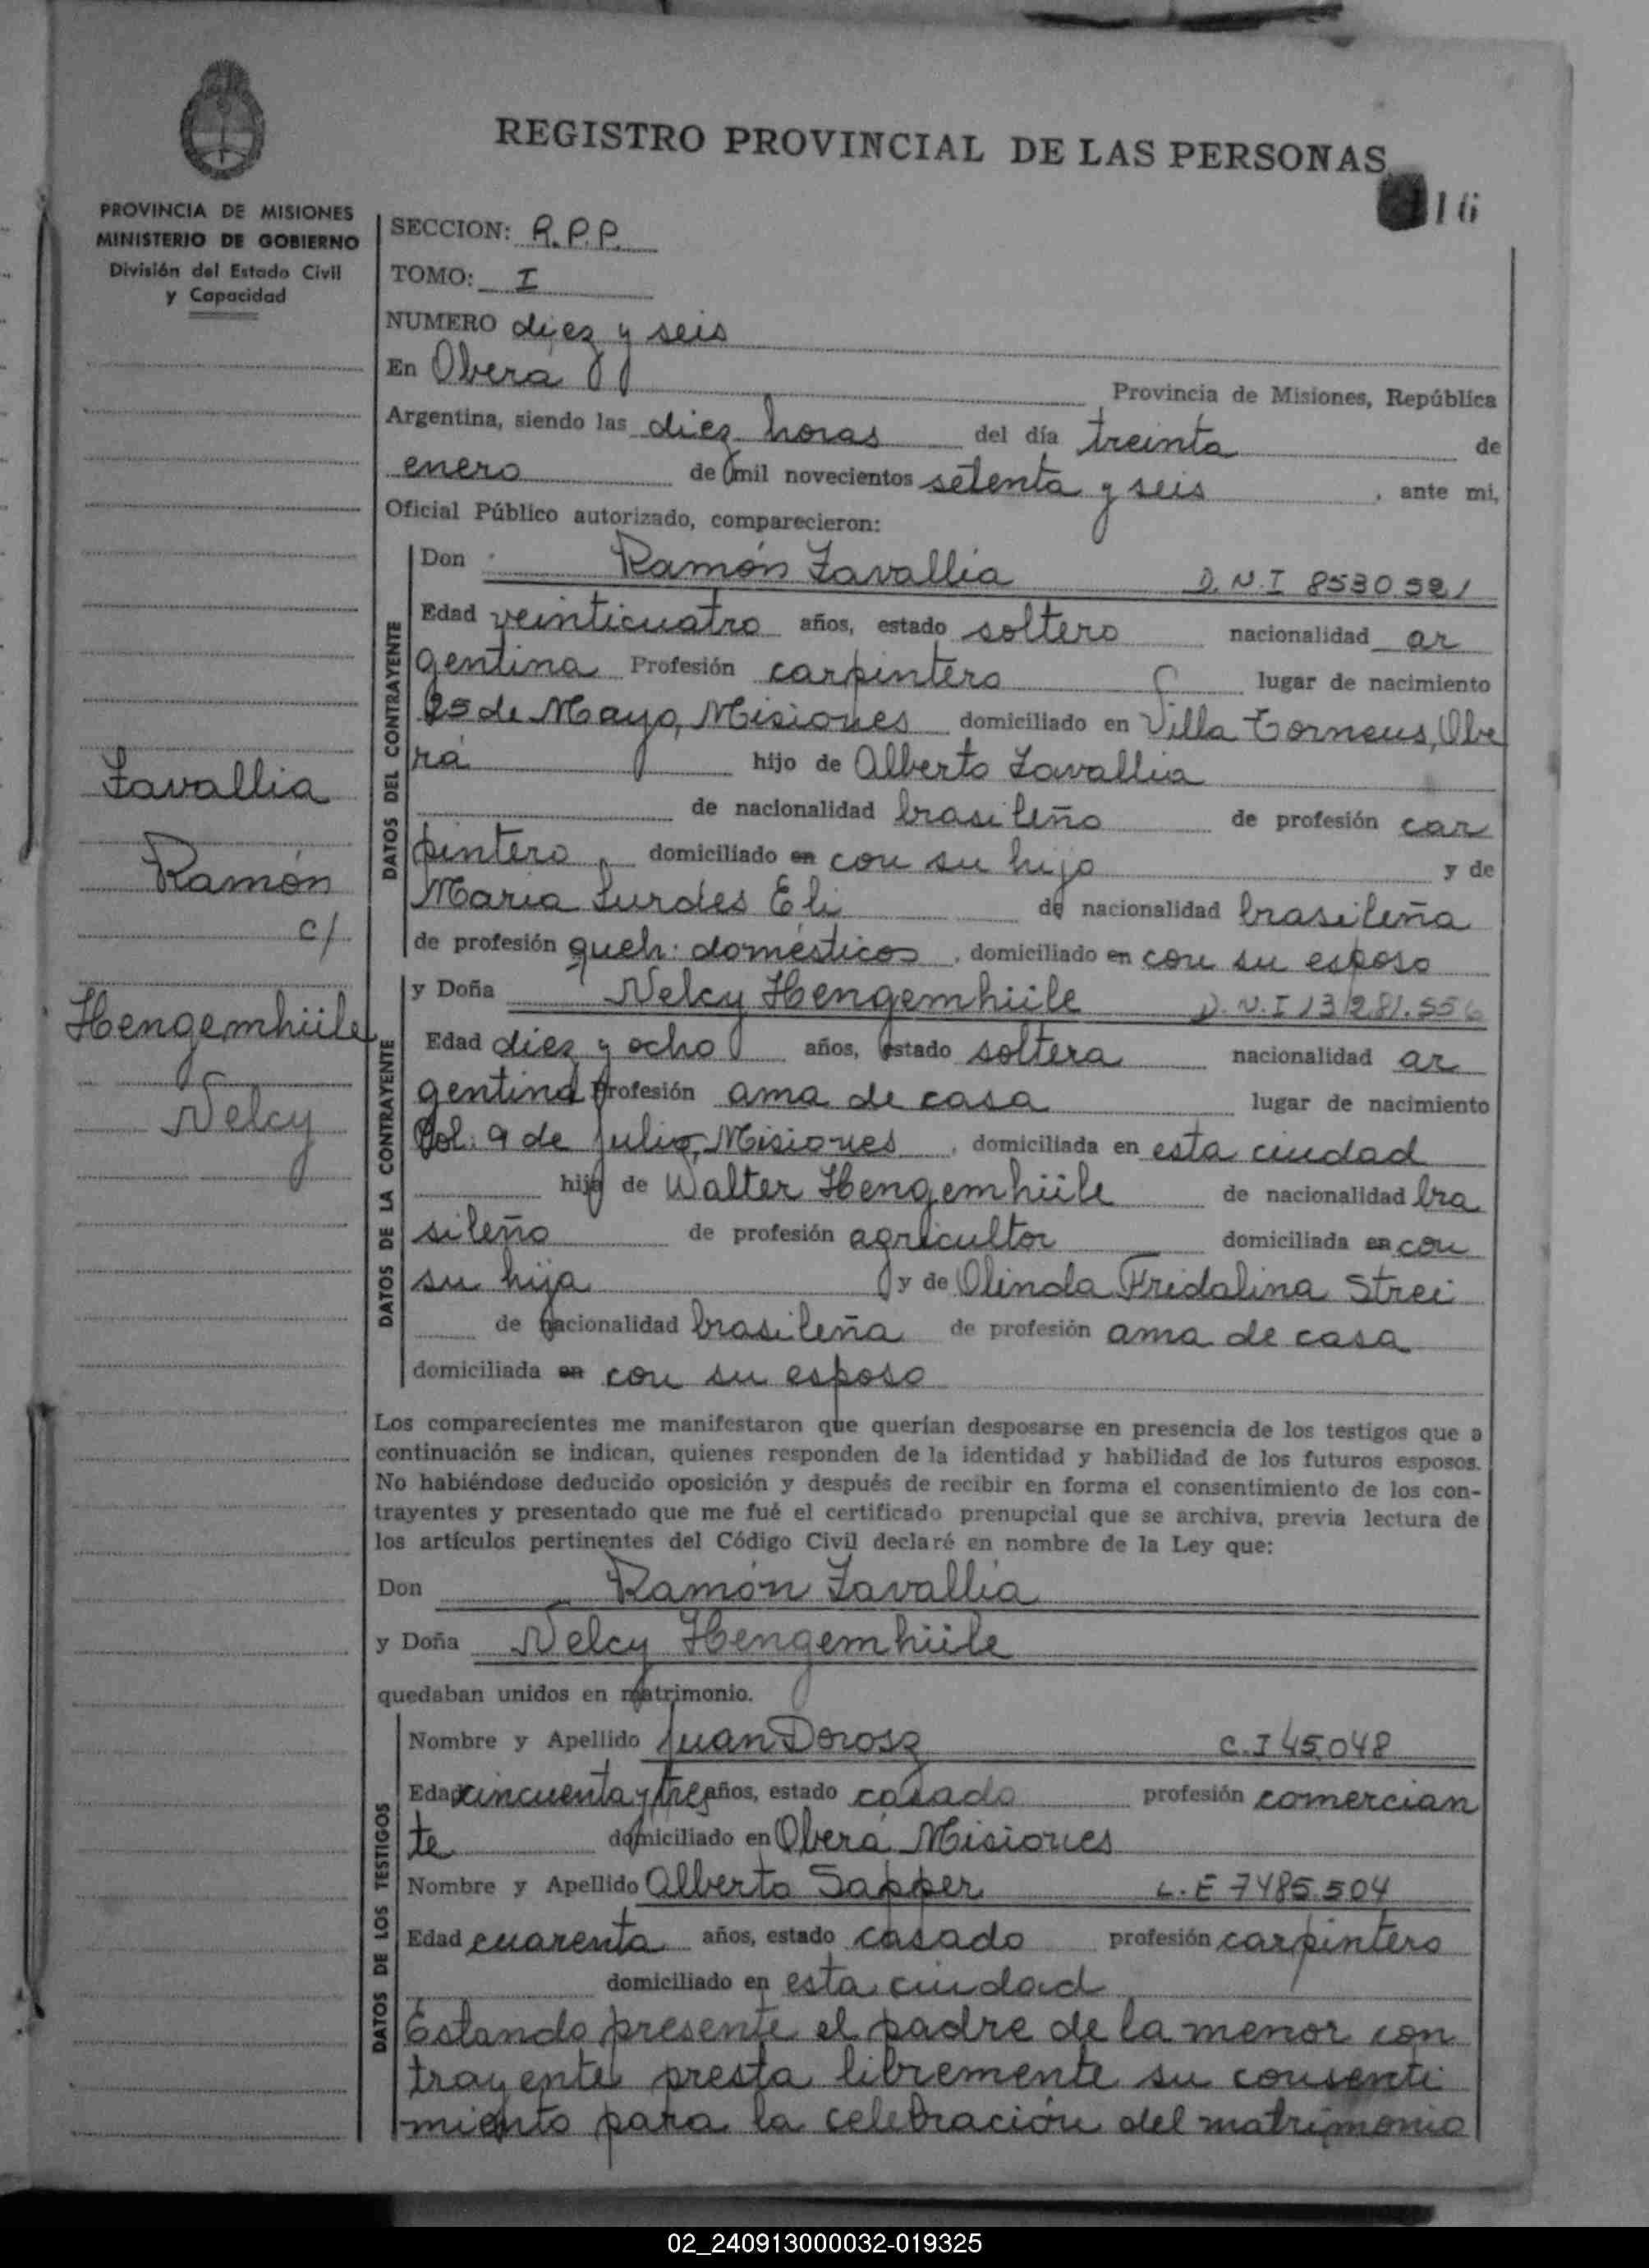 REGISTRO PROVINCIAL DE LAS PERSONAS
16
PROVINCIA DE MISIONES
MINISTERIO DE GOBIERNO
División del Estado Civil
y Capacidad
SECCION: R.P.P.
TOMO: I
NUMERO diez y seis
En Oberá Provincia de Misiones, República
Argentina, siendo las diez horas del día treinta de
enero de mil novecientos setenta y seis, ante mi,
Oficial Público autorizado, comparecieron:
DATOS DEL CONTRAYENTE
Don Ramón Zavallia D.N.I 8530.521
Edad veinticuatro años, estado soltero nacionalidad ar
gentina Profesión carpintero lugar de nacimiento
25 de Mayo, Misiones domiciliado en Villa Torneus, Obe
rá hijo de Alberto Zavallia
de nacionalidad brasileño de profesión car
pintero, domiciliado en con su hijo y de
Maria Lurdes Eli de nacionalidad brasileña
de profesión queh. domésticos, domiciliado en con su esposo
Zavallia
Ramón
c/
Hengemhüle
Nelcy
DATOS DE LA CONTRAYENTE
y Doña Nelcy Hengemhüle D.N.I 13.281.556
Edad diez y ocho años, estado soltera nacionalidad ar
gentina Profesión ama de casa lugar de nacimiento
Col. 9 de Julio, Misiones, domiciliada en esta ciudad
hija de Walter Hengemhüle de nacionalidad bra
sileño de profesión agricultor domiciliada en con
su hija y de Olinda Fridalina Strei
de nacionalidad brasileña de profesión ama de casa
domiciliada en con su esposo
Los comparecientes me manifestaron que querían desposarse en presencia de los testigos que a
continuación se indican, quienes responden de la identidad y habilidad de los futuros esposos.
No habiéndose deducido oposición y después de recibir en forma el consentimiento de los con-
trayentes y presentado que me fué el certificado prenupcial que se archiva, previa lectura de
los artículos pertinentes del Código Civil declaré en nombre de la Ley que:
Don Ramón Zavallia
y Doña Nelcy Hengemhüle
quedaban unidos en matrimonio.
DATOS DE LOS TESTIGOS
Nombre y Apellido Juan Dorosz C.I 45.048
Edad cincuenta y tres años, estado casado profesión comercian
te domiciliado en Oberá Misiones
Nombre y Apellido Alberto Sapper L.E 7485.504
Edad cuarenta años, estado casado profesión carpintero
domiciliado en esta ciudad
Estando presente el padre de la menor con
trayente presta libremente su consenti
miento para la celebración del matrimonio
02_240913000032-019325